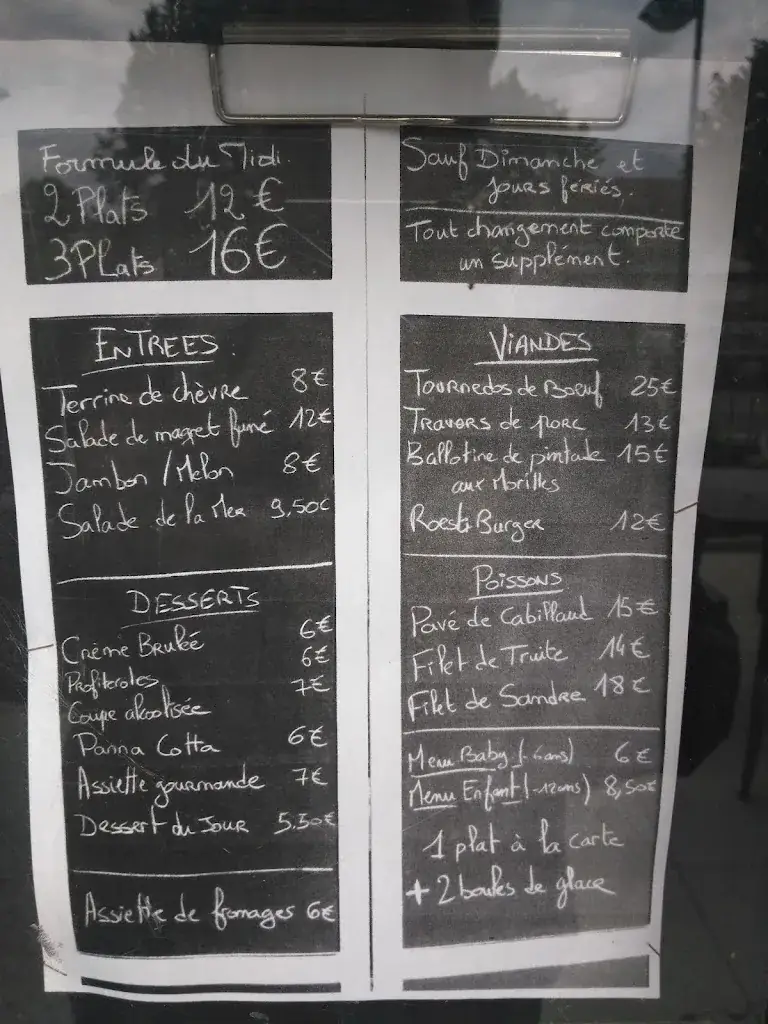 Formule du Midi.
2 Plats 12 €
3 Plats 16 €
Sauf Dimanche et
Jours fériés.
Tout changement comporte
un supplément.
ENTREES
Terrine de chèvre 8 €
Salade de magret fumé 12 €
Jambon / Melon 8 €
Salade de la Mer 9,50 €
DESSERTS
Crème Brulée 6 €
Profiteroles 6 €
Coupe alcoolisée 7 €
Panna Cotta 6 €
Assiette gourmande 7 €
Dessert du Jour 5,50 €
Assiette de fromages 6 €
VIANDES
Tournedos de Boeuf 25 €
Travers de porc 13 €
Ballotine de pintade 15 €
aux Morilles
Roesti Burger 12 €
POISSONS
Pavé de Cabillaud 15 €
Filet de Truite 14 €
Filet de Sandre 18 €
Menu Baby (-6ans) 6 €
Menu Enfant (-12ans) 8,50 €
1 plat à la carte
+ 2 boules de glace